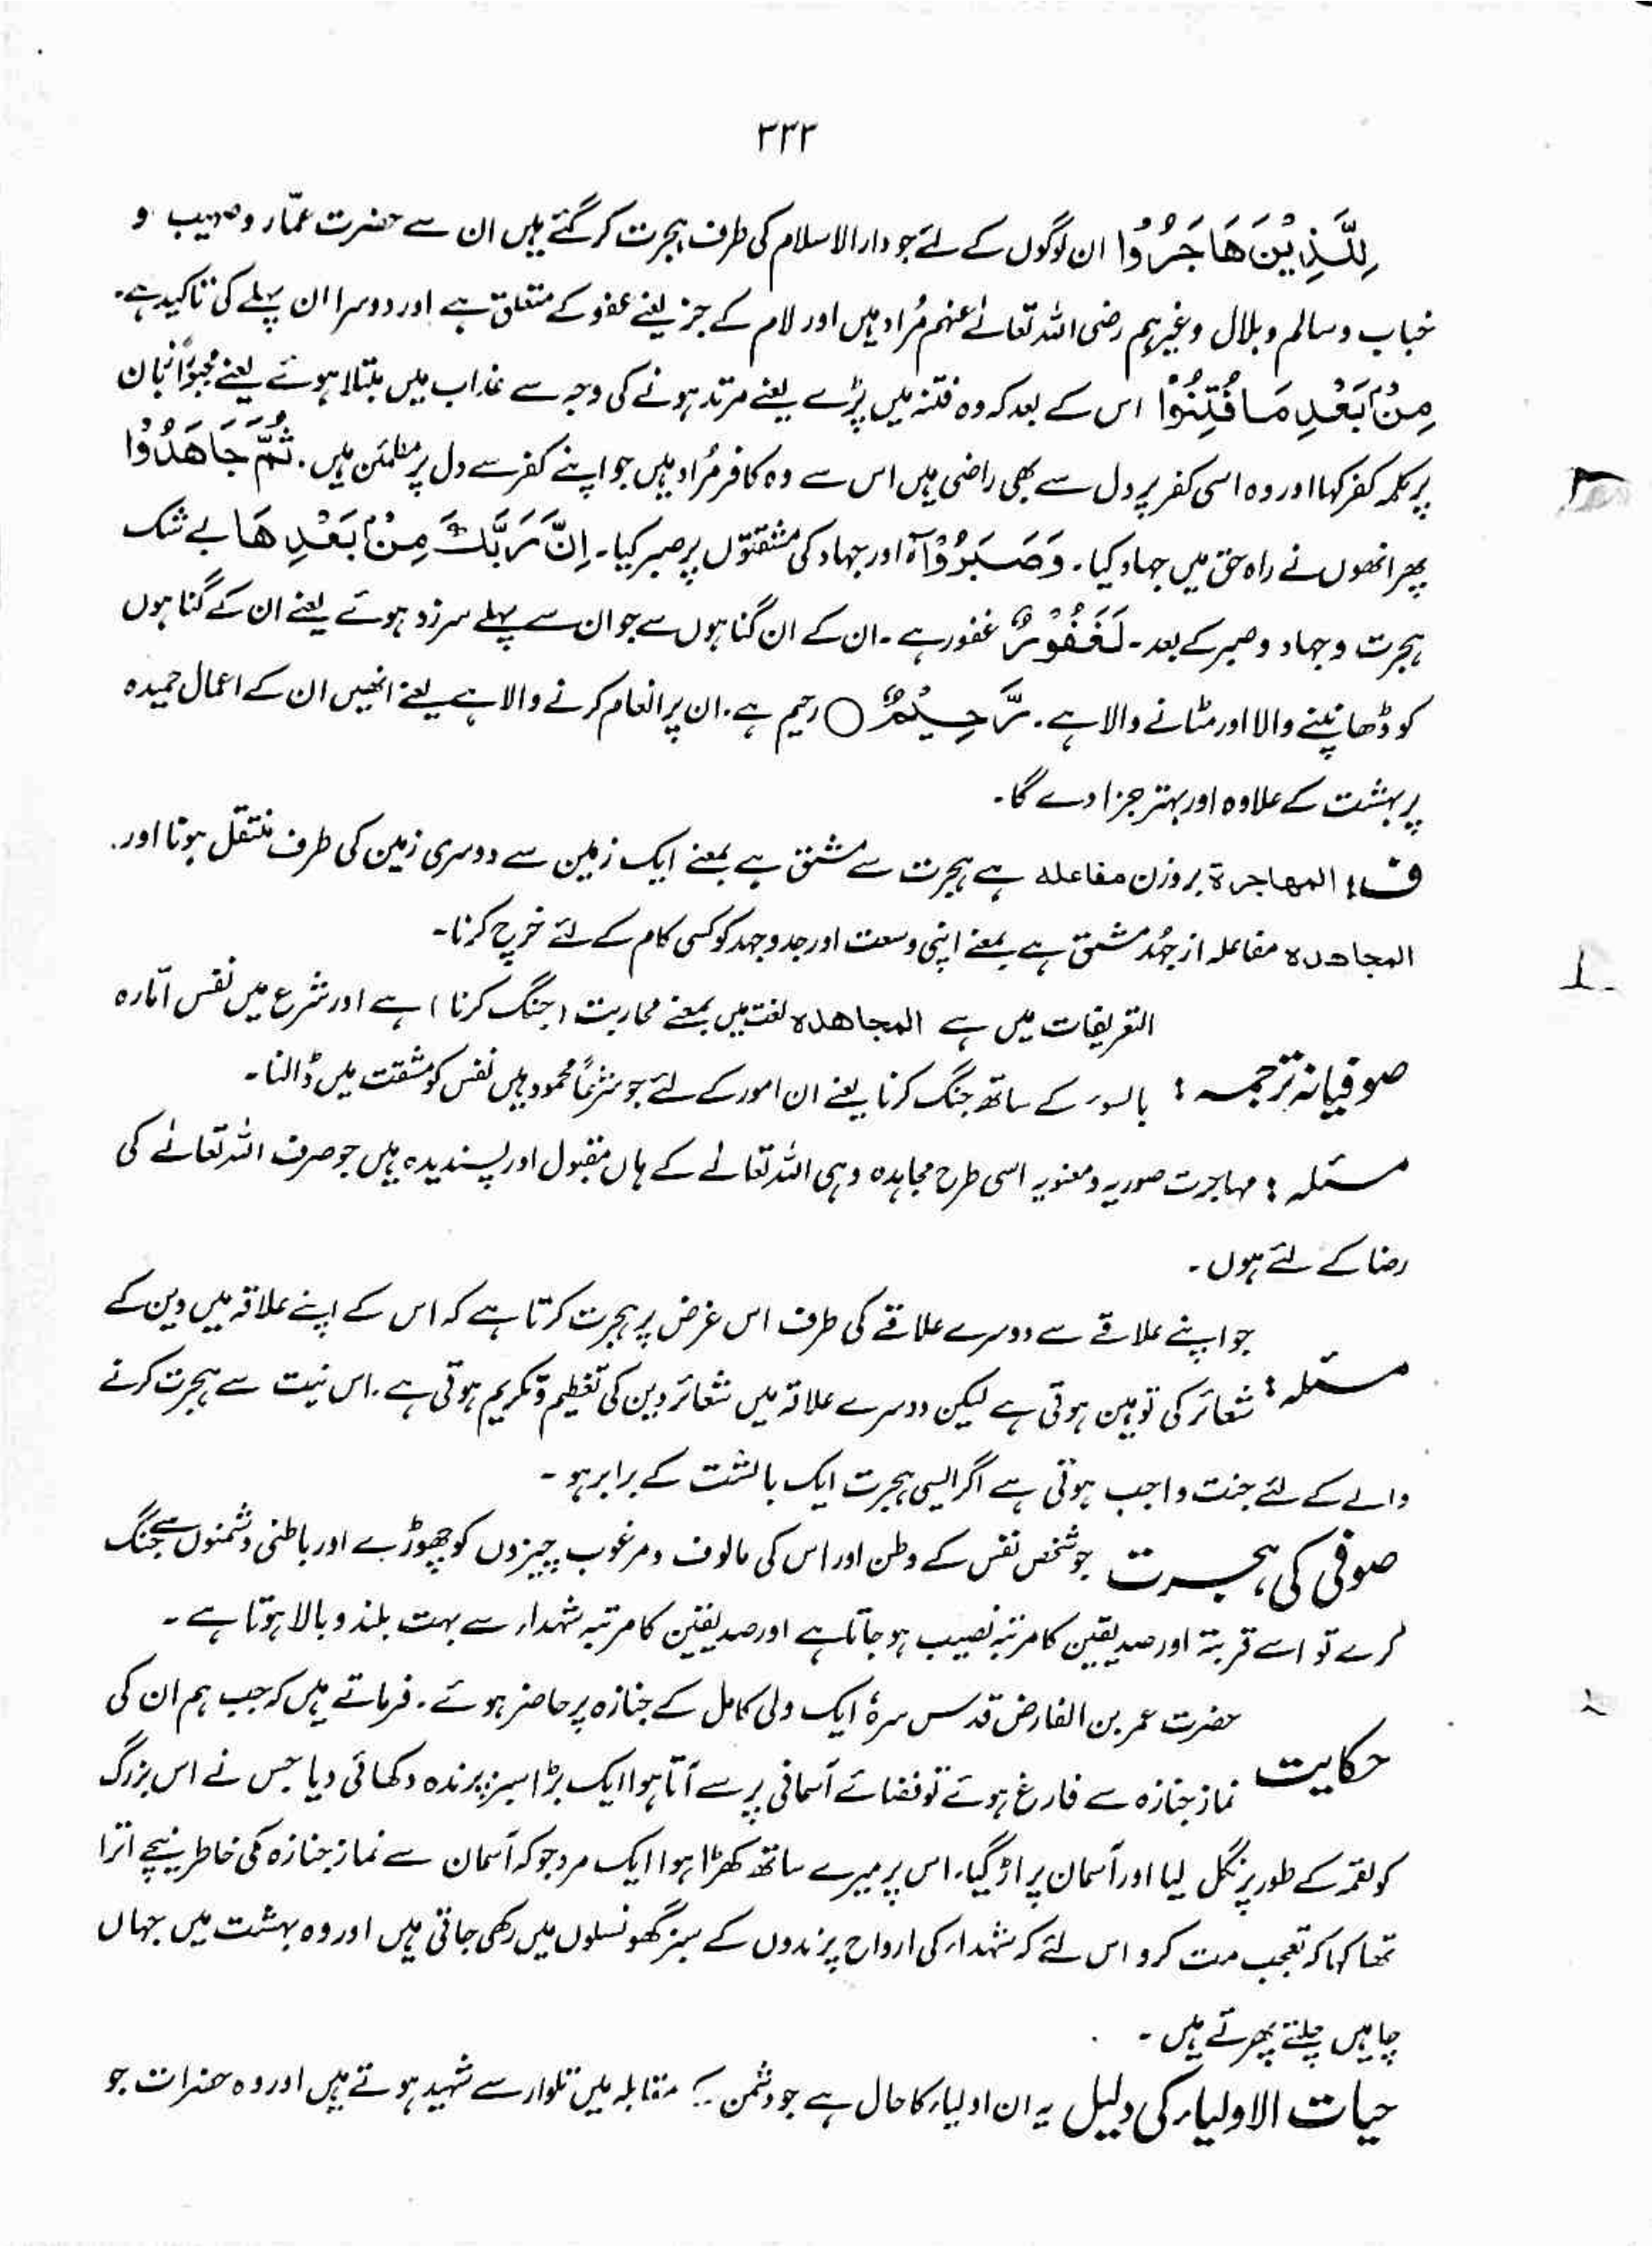 ۳۳۳
لِلَّذِیْنَ هَاجَرُوْا ان لوگوں کے لئے جو دارالاسلام کی طرف ہجرت کر گئے ہیں ان سے حضرت عمّار و صہیب و
خباب و سالم و بلال وغیرہم رضی اللہ تعالےٰ عنہم مُراد ہیں اور لام کے جز یعنے عفو کے متعلق ہے اور دوسرا ان پہلے کی تاکید ہے۔
مِنْۢ بَعْدِ مَا فُتِنُوْا اس کے بعد کہ وہ فتنہ میں پڑے یعنے مرتد ہونے کی وجہ سے عذاب میں مبتلا ہوئے یعنے مجبورًا زبان
پر کلمہ کفر کہا اور وہ اسی کفر پر دل سے بھی راضی ہیں اس سے وہ کافر مُراد ہیں جو اپنے کفر سے دل پر مطمئن ہیں۔ ثُمَّ جَاهَدُوْا
پھر انھوں نے راہ حق میں جہاد کیا۔ وَصَبَرُوْٓا اور جہاد کی مشقتوں پر صبر کیا۔ اِنَّ رَبَّكَ مِنْۢ بَعْدِهَا بے شک
ہجرت و جہاد و صبر کے بعد۔ لَغَفُوْرٌ غفور ہے۔ ان کے ان گناہوں سے جو ان سے پہلے سرزد ہوئے یعنے ان کے گناہوں
کو ڈھانپنے والا اور مٹانے والا ہے۔ رَّحِیْمٌ ○ رحیم ہے۔ ان پر انعام کرنے والا ہے یعنے انھیں ان کے اعمال حمیدہ
پر بہشت کے علاوہ اور بہتر جزا دے گا۔
ف : المهاجرة بروزن مفاعله ہے ہجرت سے مشتق ہے بمعنے ایک زمین سے دوسری زمین کی طرف منتقل ہونا اور
المجاهدہ مفاعلہ از جہُد مشتق ہے بمعنے اپنی وسعت اور جدوجہد کو کسی کام کے لئے خرچ کرنا۔
التعریفات میں ہے المجاهدہ لغت میں بمعنے محاربت (جنگ کرنا) ہے اور شرع میں نفس امّارہ
صوفیانہ ترجمہ : بالسوء کے ساتھ جنگ کرنا یعنے ان امور کے لئے جو شرعًا محمود ہیں نفس کو مشقت میں ڈالنا۔
مسئلہ : مہاجرت صوریہ و معنویہ اسی طرح مجاہدہ وہی اللہ تعالےٰ کے ہاں مقبول اور پسندیدہ ہیں جو صرف اللہ تعالےٰ کی
رضا کے لئے ہوں۔
جو اپنے علاقے سے دوسرے علاقے کی طرف اس غرض پر ہجرت کرتا ہے کہ اس کے اپنے علاقہ میں دین کے
مسئلہ : شعائر کی توہین ہوتی ہے لیکن دوسرے علاقہ میں شعائر دین کی تعظیم و تکریم ہوتی ہے۔ اس نیت سے ہجرت کرنے
والے کے لئے جنت واجب ہوتی ہے اگر ایسی ہجرت ایک بالشت کے برابر ہو۔
صوفی کی ہجرت جو شخص نفس کے وطن اور اس کی مالوف و مرغوب چیزوں کو چھوڑے اور باطنی دشمنوں سے جنگ
کرے تو اسے قربتہ اور صدیقین کا مرتبہ نصیب ہو جاتا ہے اور صدیقین کا مرتبہ شہداء سے بہت بلند و بالا ہوتا ہے۔
حضرت عمر بن الفارض قدس سرہٗ ایک ولی کامل کے جنازہ پر حاضر ہوئے۔ فرماتے ہیں کہ جب ہم ان کی
حکایت نماز جنازہ سے فارغ ہوئے تو فضائے آسمانی پر سے آتا ہوا ایک بڑا سبز پرندہ دکھائی دیا جس نے اس بزرگ
کو لقمہ کے طور پر نگل لیا اور آسمان پر اڑ گیا۔ اس پر میرے ساتھ کھڑا ہوا ایک مرد جو کہ آسمان سے نماز جنازہ کی خاطر نیچے اترا
تھا کہا کہ تعجب مت کرو اس لئے کہ شہداء کی ارواح پرندوں کے سبز گھونسلوں میں رکھی جاتی ہیں اور وہ بہشت میں جہاں
چاہیں چلتے پھرتے ہیں۔
حیات الاولیاء کی دلیل یہ ان اولیاء کا حال ہے جو دشمن کے مقابلہ میں تلوار سے شہید ہوتے ہیں اور وہ حضرات جو